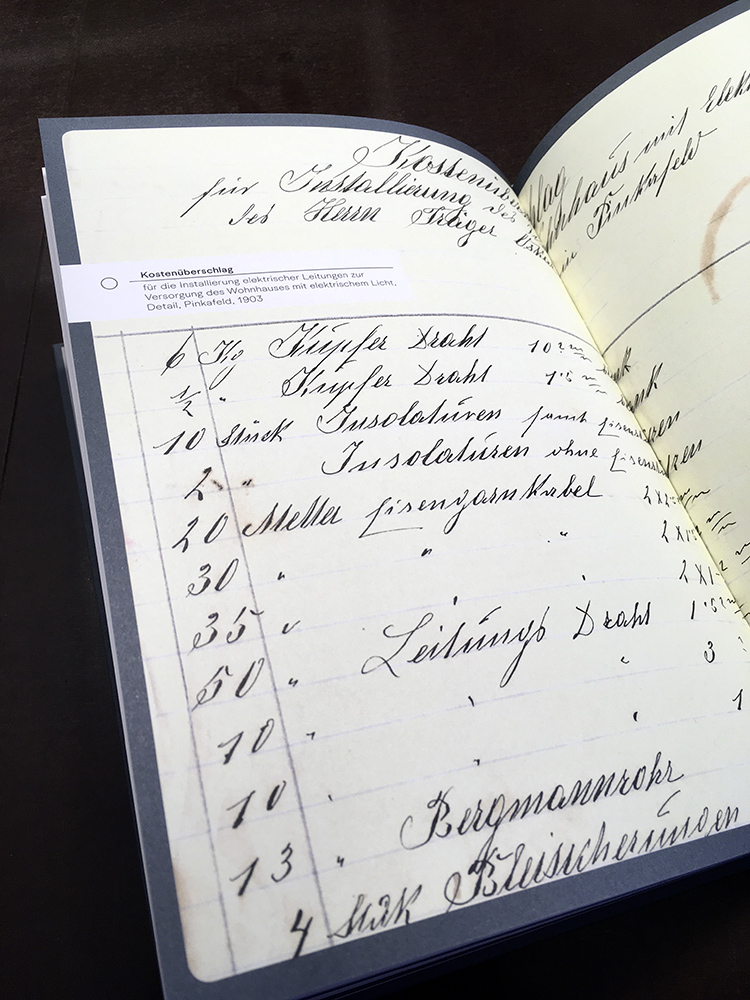 Kostenüberschlag
für Installierung des Wohnhaus mit Elek
des Herrn Träger in Pinkafeld
Kostenüberschlag
für die Installierung elektrischer Leitungen zur
Versorgung des Wohnhauses mit elektrischem Licht,
Detail, Pinkafeld, 1903
6 Kg Kupfer Draht 10
½ " Kupfer Draht 1·5
10 Stück Insolatúren samt
2 " Insolatúren ohne
20 Metter Eisengarnkabel 2X2
30 " " " 2X1
35 " " " 2X1
50 " Leitúngs Draht 1·5
10 " " " 3
10 " " " 1
13 " Bergmannrohr
4 Stük Bleisicherúngen